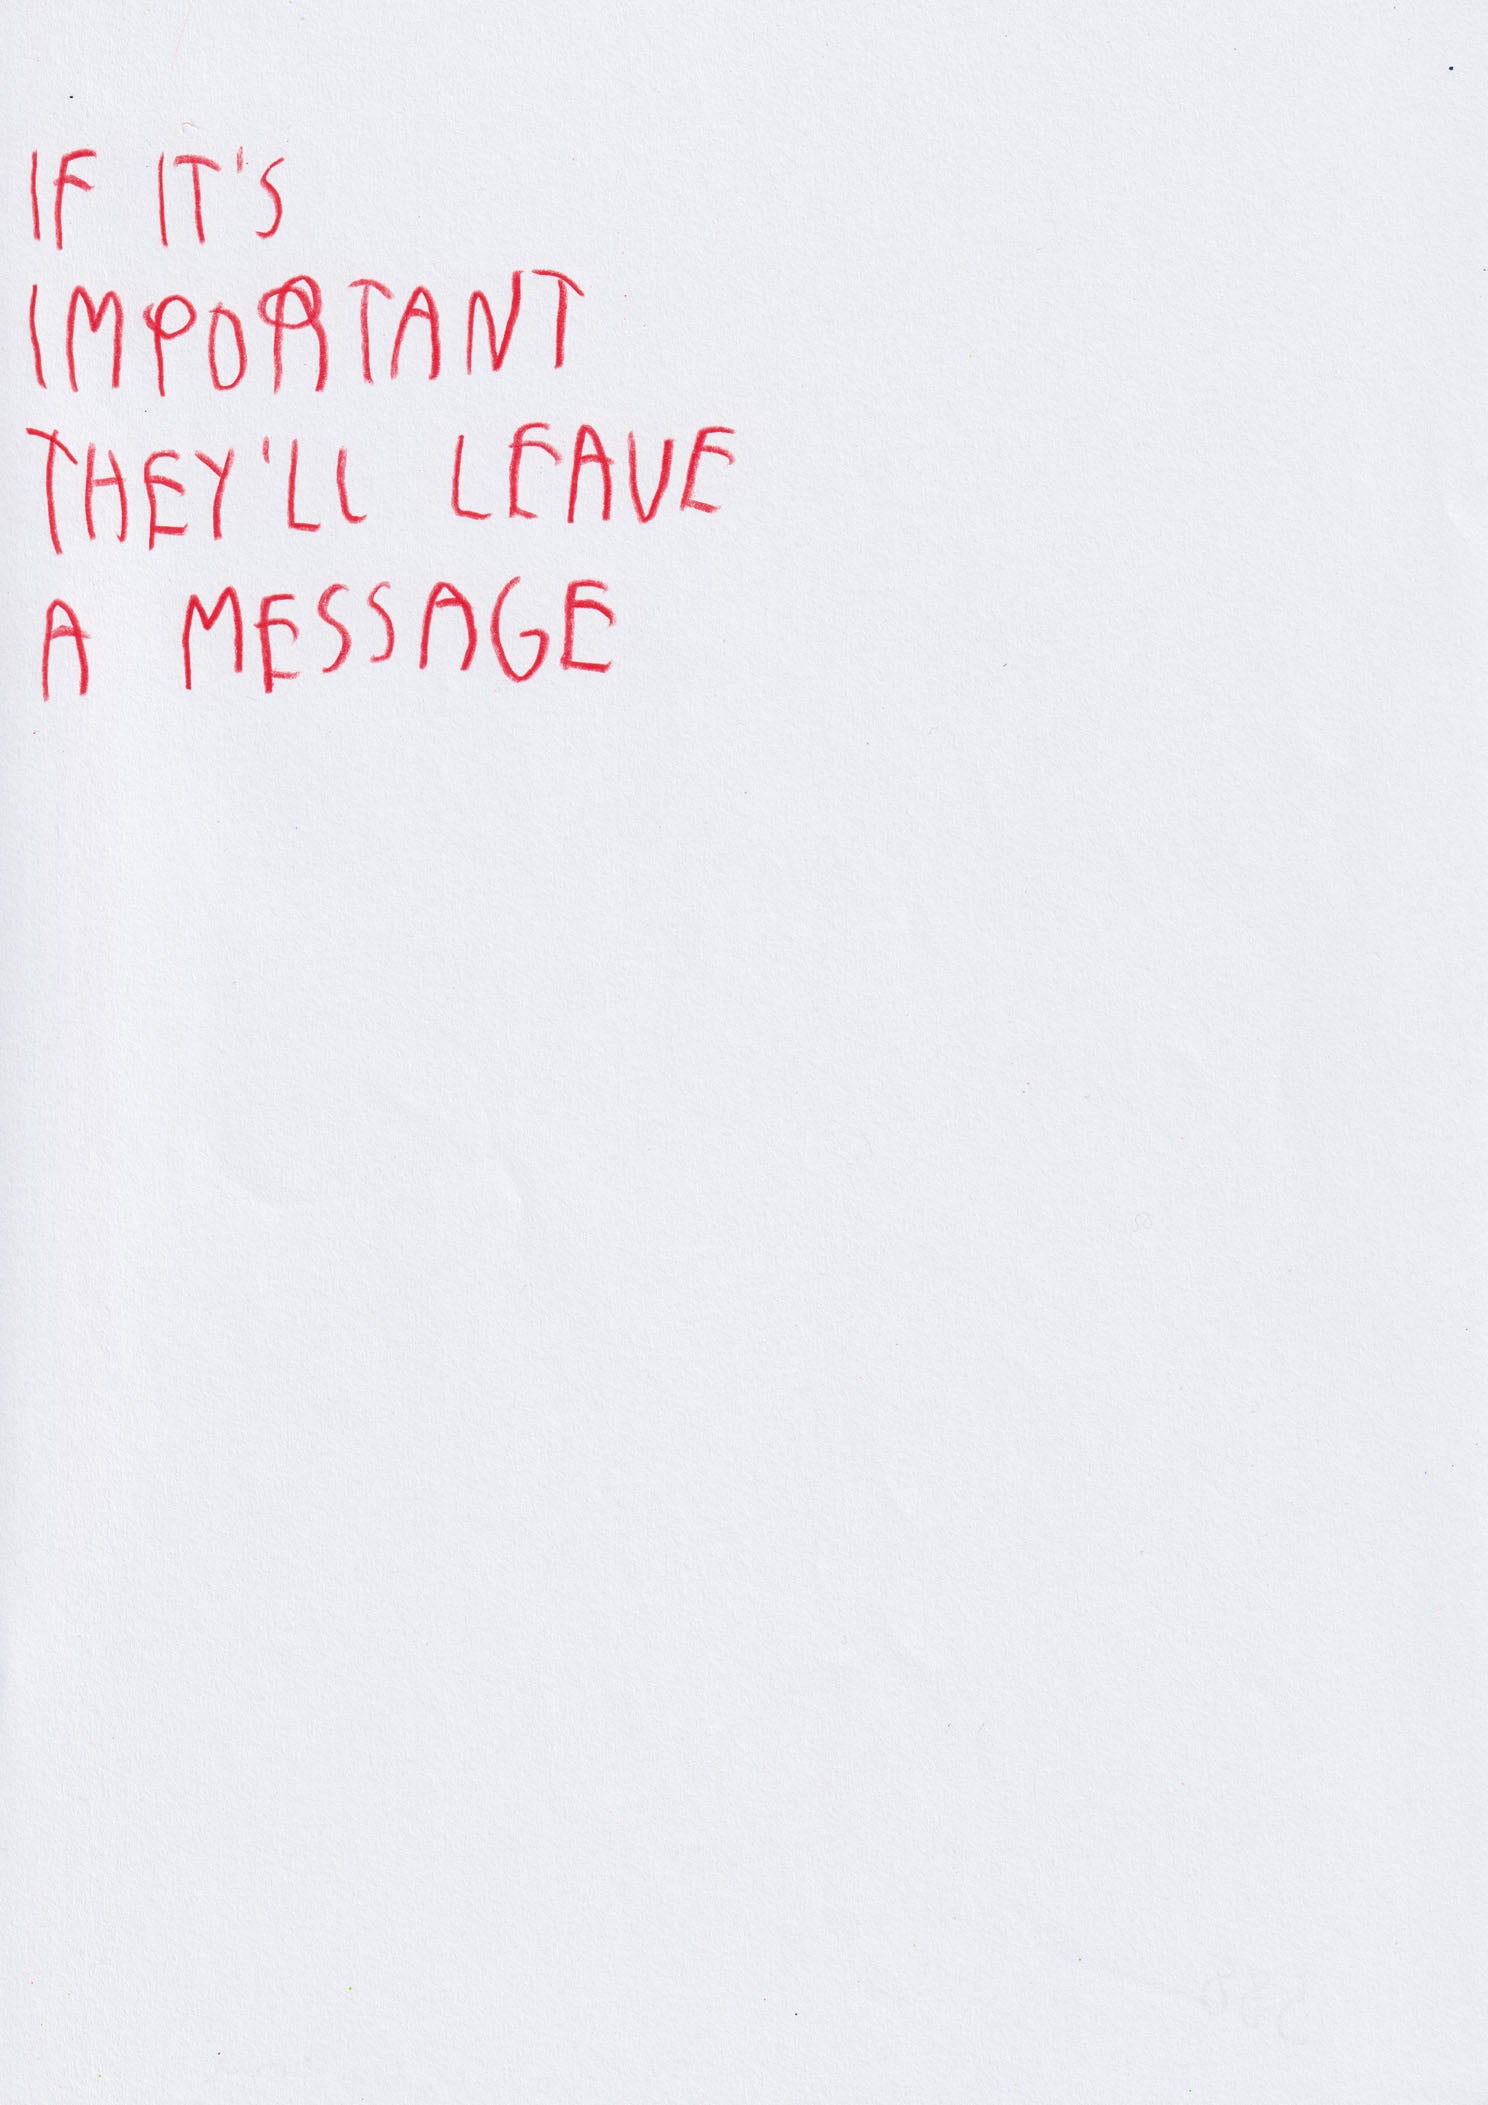 IF IT'S
IMPORTANT
THEY'LL LEAVE
A MESSAGE